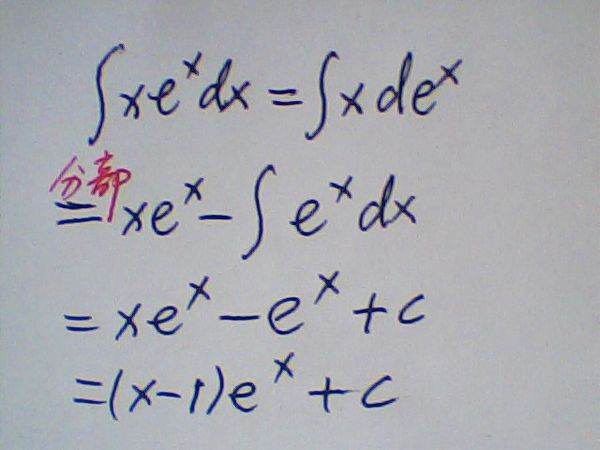 ∫xeˣdx=∫xdeˣ
分部
=xeˣ-∫eˣdx
=xeˣ-eˣ+c
=(x-1)eˣ+c